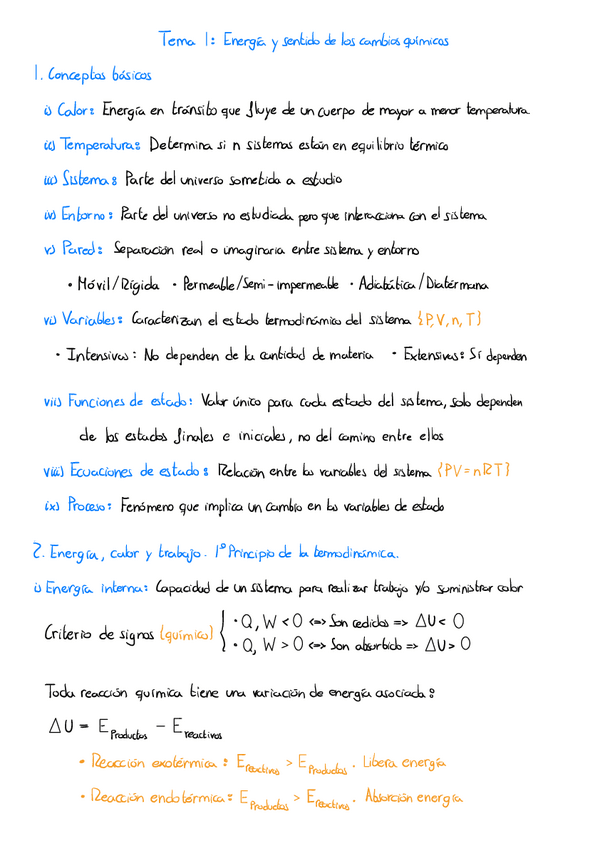 Tema 1: Energía y sentido de los cambios químicos
1. Conceptos básicos
i) Calor: Energía en tránsito que fluye de un cuerpo de mayor a menor temperatura
ii) Temperatura: Determina si n sistemas están en equilibrio térmico
iii) Sistema: Parte del universo sometida a estudio
iv) Entorno: Parte del universo no estudiada pero que interacciona con el sistema
v) Pared: Separación real o imaginaria entre sistema y entorno
• Móvil/Rígida • Permeable/Semi-impermeable • Adiabática/Diatérmana
vi) Variables: Caracterizan el estado termodinámico del sistema {P,V,n,T}
• Intensivas: No dependen de la cantidad de materia • Extensivas: Sí dependen
vii) Funciones de estado: Valor único para cada estado del sistema, solo dependen
de los estados finales e iniciales, no del camino entre ellos
viii) Ecuaciones de estado: Relación entre las variables del sistema {PV=nRT}
ix) Proceso: Fenómeno que implica un cambio en las variables de estado
2. Energía, calor y trabajo. 1º Principio de la termodinámica.
i) Energía interna: Capacidad de un sistema para realizar trabajo y/o suministrar calor
Criterio de signos (químico) { • Q, W < 0 <=> Son cedidos => ΔU < 0
• Q, W > 0 <=> Son absorbido => ΔU > 0
Toda reacción química tiene una variación de energía asociada:
ΔU = E Productos - E reactivos
• Reacción exotérmica: E reactivos > E Productos. Libera energía
• Reacción endotérmica: E Productos > E reactivos. Absorción energía